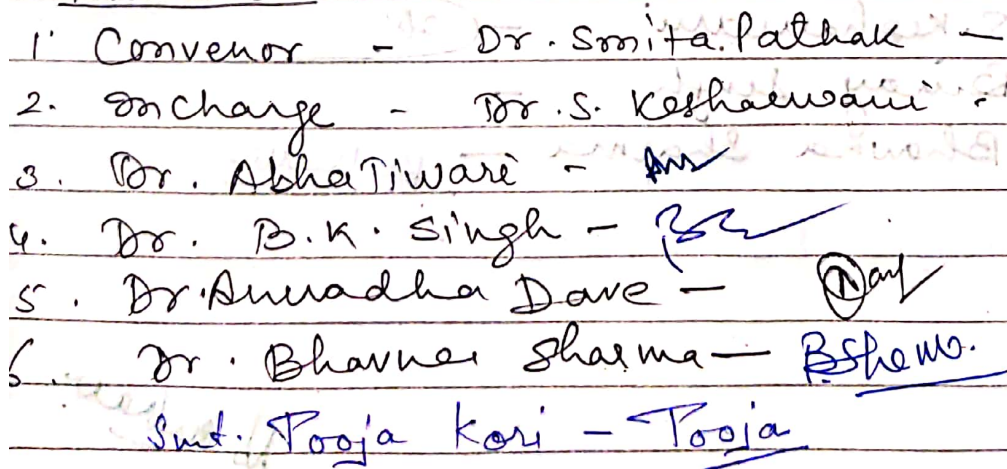 1. Convenor - Dr. Smita. Pathak -
2. Incharge - Dr. S. Kesharwani -
3. Dr. Abha Tiwari -
4. Dr. B.K. Singh -
5. Dr. Anuradha Dave -
6. Dr. Bhavna Sharma - BSharma.
Smt. Pooja Kori - Pooja